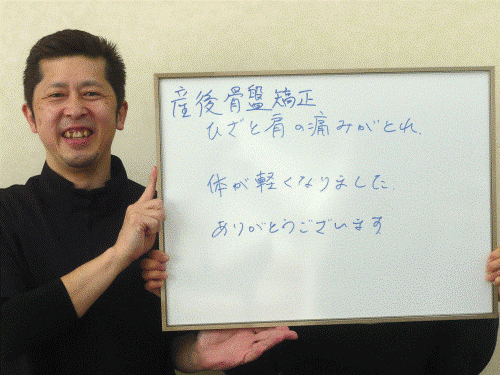 産後骨盤矯正
ひざと肩の痛みがとれ、
体が軽くなりました。
ありがとうございます